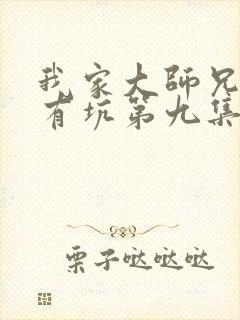 我家大師兄
有坑第九集
栗子哒哒哒